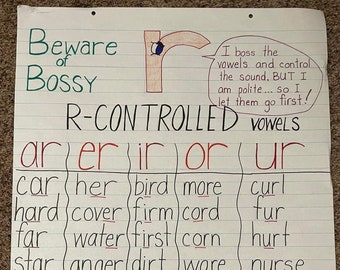 Beware
of
Bossy
r
I boss the
vowels and control
the sound, BUT I
am polite... so I
let them go first!
R-CONTROLLED vowels
ar er ir or ur
car her bird more curl
hard cover firm cord fur
far water first corn hurt
star anger dirt wore nurse